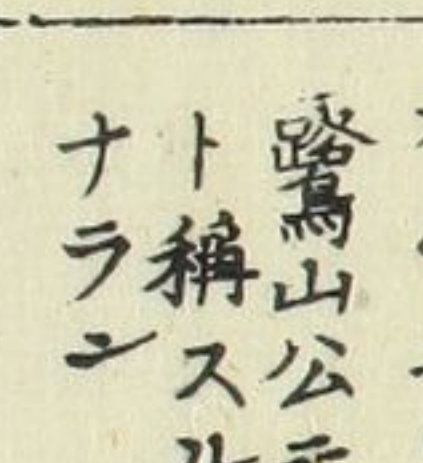 鷺山公
ト稱ス
ナラン